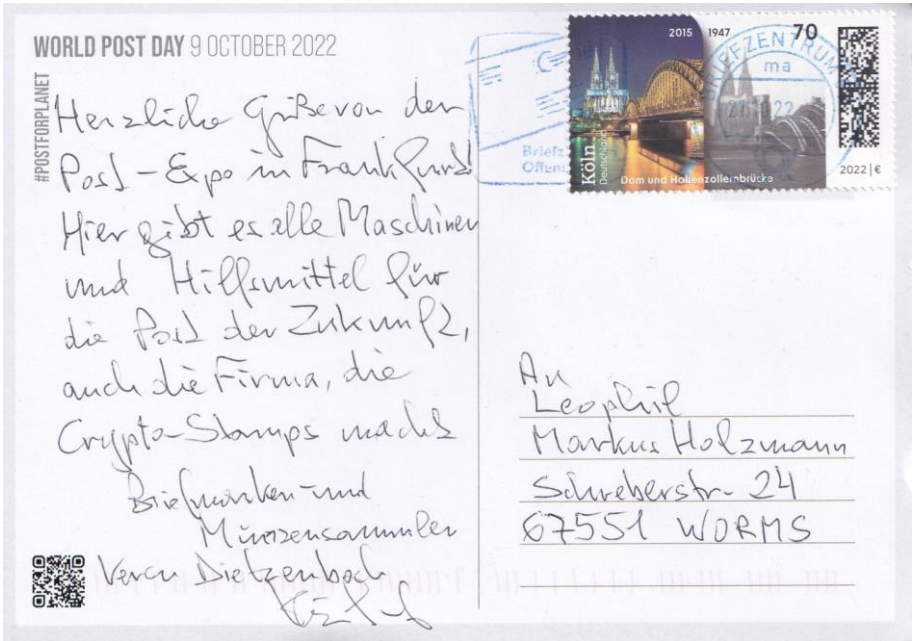 WORLD POST DAY 9 OCTOBER 2022
#POSTFORPLANET
Herzliche Grüße von der
Post-Expo in Frankfurt!
Hier gibt es alle Maschinen
und Hilfsmittel für
die Post der Zukunft,
auch die Firma, die
Crypto-Stamps macht
Briefmarken- und
Münzensammler
Verein Dietzenbach
2015 1947 70
Köln
Deutschland
Dom und Hohenzollernbrücke
2022 | €
BRIEFZENTRUM
ma
22
An
Leophil
Markus Holzmann
Schreberstr. 24
67551 WORMS